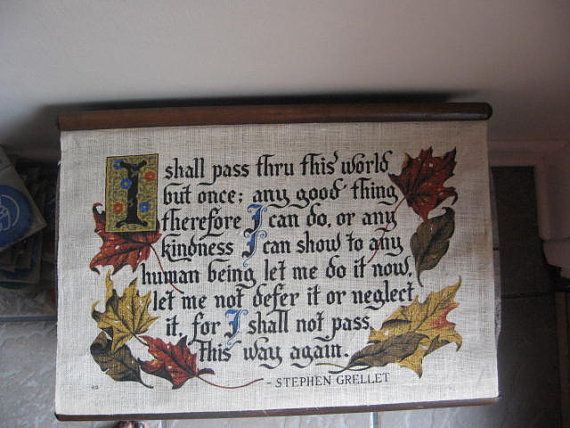 I shall pass thru this world
but once; any good thing
therefore I can do, or any
kindness I can show to any
human being, let me do it now,
let me not defer it or neglect
it, for I shall not pass
this way again.
- STEPHEN GRELLET